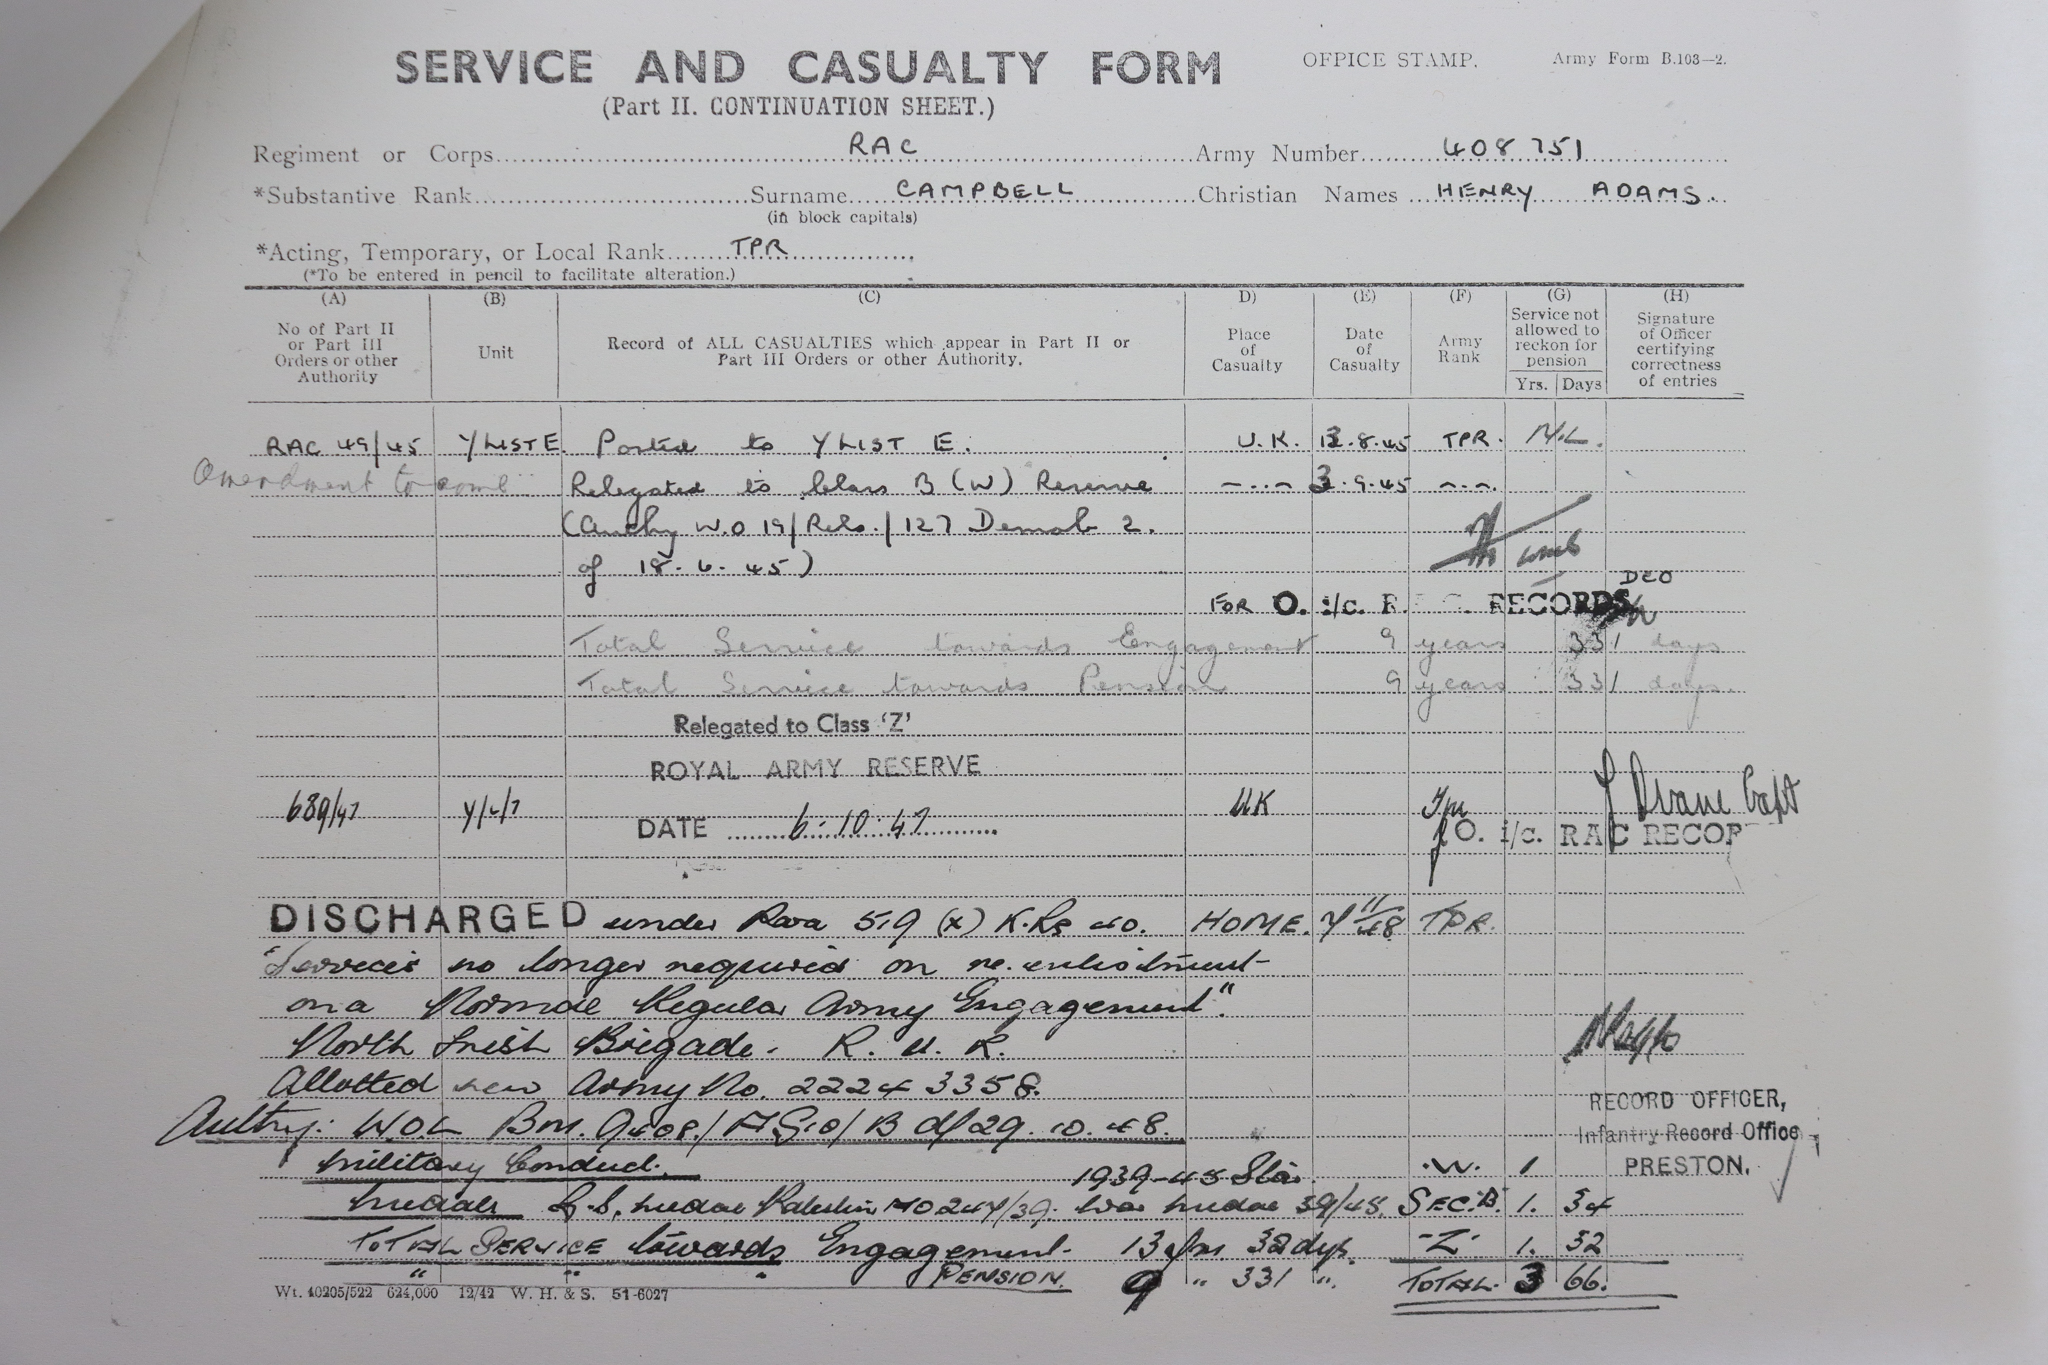 SERVICE AND CASUALTY FORM OFFICE STAMP. Army Form B.103—2.
(Part II. CONTINUATION SHEET.)
Regiment or Corps RAC Army Number 408751
*Substantive Rank Surname CAMPBELL Christian Names HENRY ADAMS.
(in block capitals)
*Acting, Temporary, or Local Rank TPR
(*To be entered in pencil to facilitate alteration.)
(A) (B) (C) D) (E) (F) (G) (H)
No of Part II or Part III Orders or other Authority
Unit
Record of ALL CASUALTIES which appear in Part II or Part III Orders or other Authority.
Place of Casualty
Date of Casualty
Army Rank
Service not allowed to reckon for pension
Yrs. Days
Signature of Officer certifying correctness of entries
RAC 49/45 Y LIST E Posted to Y LIST E. U.K. 8.45 TPR.
Amendment to Relegated to Class B (W) Reserve 3.9.45
(Authy W.O 19/Rels./127 Demob 2.
of 18.6.45)
DEO
FOR O. i/c. R. C. RECORDS
Total Service towards Engagement 9 years 331 days
Total Service towards Pension 9 years 331 days.
Relegated to Class 'Z'
ROYAL ARMY RESERVE
689/47 Y/4/7 DATE 6.10.47 UK Tpr Capt
O. i/c. RAC RECOR
DISCHARGED under Para 519 (x) K.Rs 40. HOME. TPR.
"Services no longer required on re.enlistment
on a Normal Regular Army Engagement".
North Irish Brigade. R.U.R.
Allotted new Army No. 22243358.
Authy: W.O.L Bm. 9408/AG10/B d/29.10.48.
RECORD OFFICER,
Infantry Record Office
PRESTON.
Military Conduct. 1939-45 Star. .W. 1
Medals G.S. Medal Palestine AO 247/39. War Medal 39/45. SEC.'B'. 1. 34
TOTAL SERVICE towards Engagement 13 yrs 32 dys. -Z- 1. 32
" " " PENSION. 9 " 331 ". TOTAL. 3 66.
Wt. 40205/522 624,000 12/42 W. H. & S. 51-6027